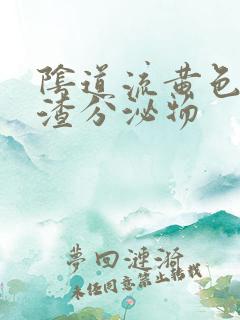 陰道流黄色
渣分泌物
夢回漣漪
未经同意禁止转载